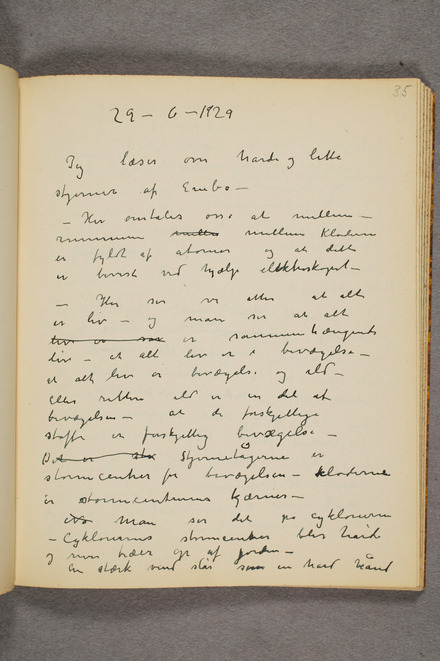 35
29 – 6 – 1929
Jeg læser om harde og lette
stjerner af Embo –
– Her omtales osse at mellem –
rummene mellem kloderne
er fyldt af atomer og at dette
er bevist ved hjælp elektroskopet –
– Her ser vi atter at alt
er liv – og man ser at alt
liv er sammenhængende
liv – at alt liv er i bevægelse –
at alt liv er bevægelse og ild –
eller rettere ild er en del af
bevægelsen – at de forskjellige
stoffe er forskjellig bevægelse –
Stjernetågerne er
stormcentrer for bevægelsen – kloderne
er stormcentrumes kjærner –
man ser det på cyklonerne
– Cyklonernes stormcenter blir hårdt
og river træer op af jorden –
En stærk vind slår som en hard hånd